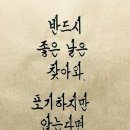 반드시
좋은 날은
찾아와.
포기하지만
않는다면